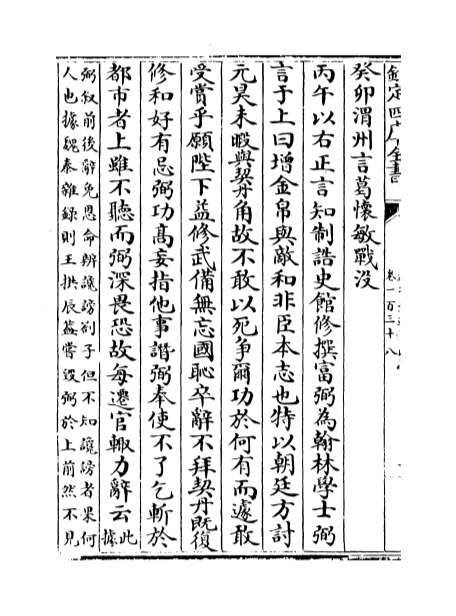 欽定四庫全書
卷一百三十八
癸卯渭州言葛懷敏戰没
丙午以右正言知制誥史館修撰富弼為翰林學士弼
言于上曰增金帛與敵和非臣本志也特以朝廷方討
元昊未暇與契丹角故不敢以死爭爾功於何有而遽敢
受賞乎願陛下益修武備無忘國恥卒辭不拜契丹既復
修和好有忌弼功髙妄指他事譖弼奉使不了乞斬於
都市者上雖不聽而弼深畏恐故每遷官輙力辭云此據
弼叙前後辭免恩命辨讒謗劄子但不知讒謗者果何
人也據魏泰雜録則王拱辰葢嘗毁弼於上前然不見